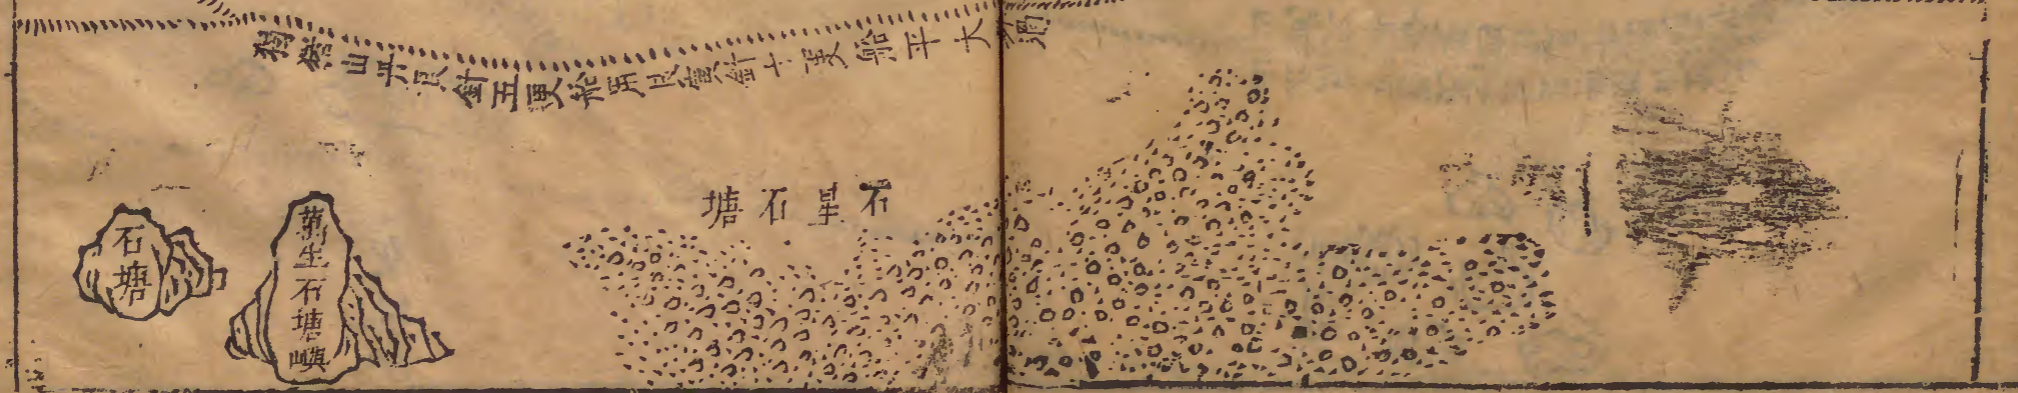 獨猪山丹艮針五更船用艮寅針十更船平大
石星石塘
萬生石塘嶼
石塘